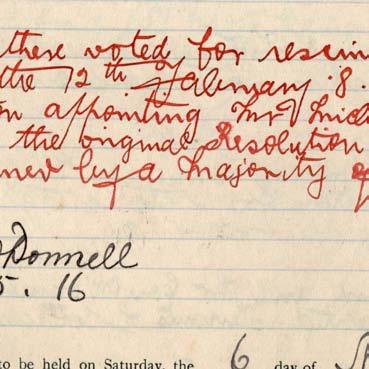 there voted for rescin
the 12th February. 8.
on appointing Mr J Mid
the original Resolution
ned by a Majority of
Donnell
5. 16
to be held on Saturday, the 6 day of